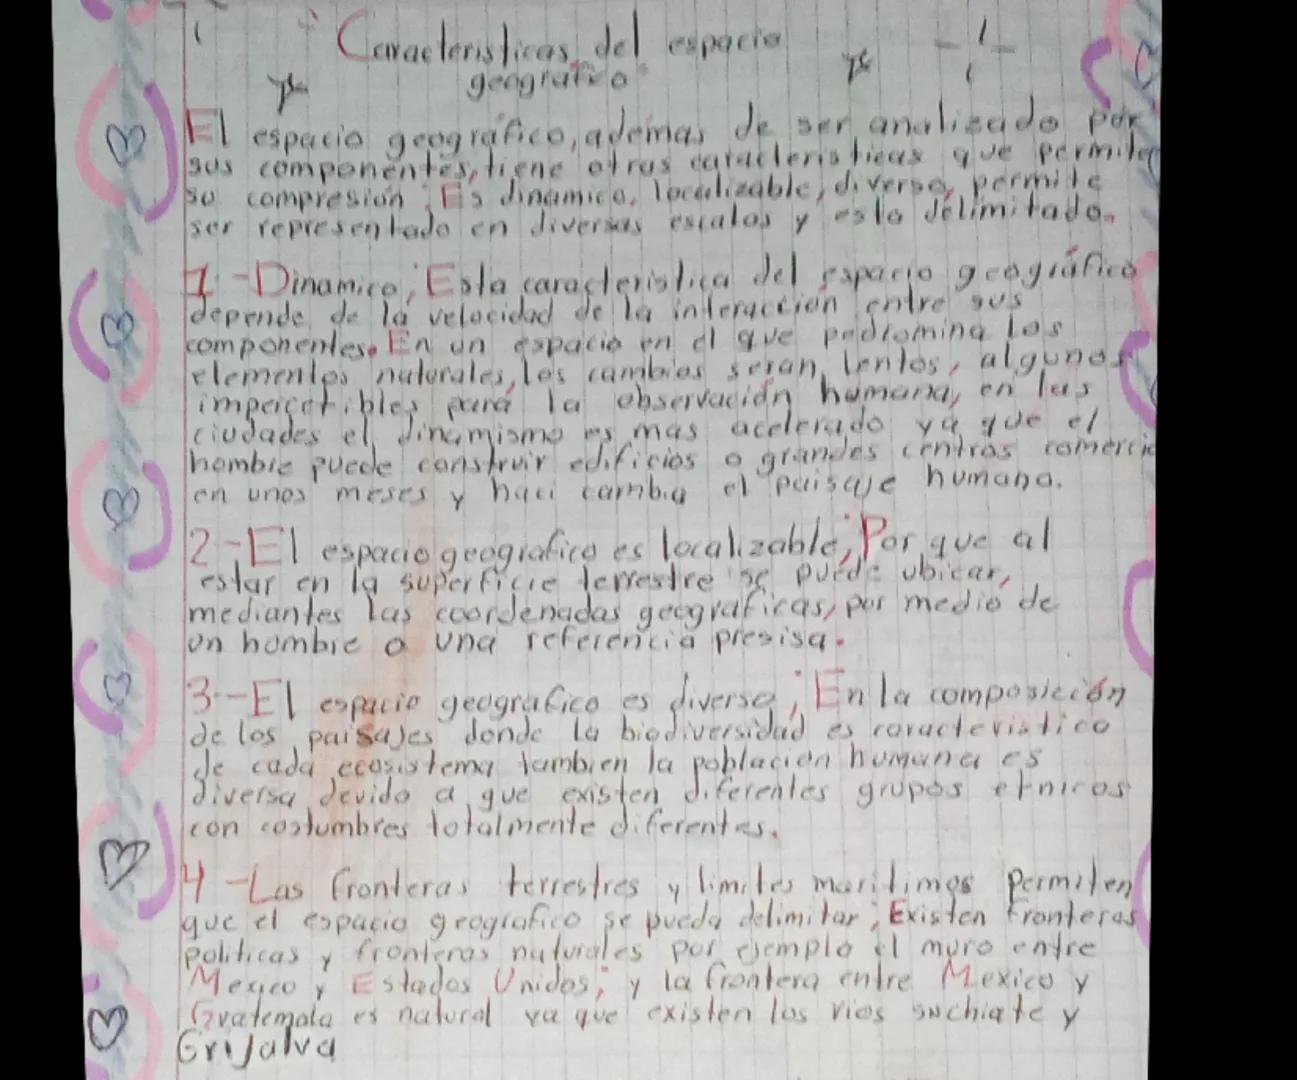 Caracteristicas del espacio
geografico
El espacio geográfico, ademas de ser analizado por
sus componentes, tiene otras caracteristicas que permiten
su compresión: Es dinamico, localizable, diverso, permite
ser representado en diversas escalas y esta delimitado.
1.-Dinamico; Esta caracteristica del espacio geográfico
depende de la velocidad de la interacción entre sus
componentes. En un espacio en el que pedromina los
elementos naturales, los cambios seran lentos, algunos
impercetibles para la observación humana, en las
ciudades el dinamismo es mas acelerado ya que el
hombre puede construir edificios o grandes centros comercia
en unos meses y haci cambia el paisaje humano.
2-El espacio geografico es localizable; Por que al
estar en la superficie terrestre se puede ubicar,
mediantes las coordenadas geograficas, por medio de
un hombre o una referencia presisa.
3.-El espacio geografico es diverso; En la composición
de los paisajes donde la biodiversidad es caracteristico
de cada ecosistema tambien la población humana es
diversa devido a que existen diferentes grupos etnicos
con costumbres totalmente diferentes.
4-Las fronteras terrestres y limites maritimos permiten
que el espacio geografico se pueda delimitar; Existen fronteras
politicas y fronteras naturales por ejemplo el muro entre
Mexico y Estados Unidos; y la frontera entre Mexico y
Guatemala es natural ya que existen los rios suchiate y
Grijalva